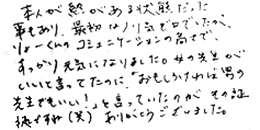 本人が熱がある状態だった
事もあり、最初はノリ気ゼロでいたが、
りょーくんのコミュニケーションの高さで、
すっかり元気になりました。女の先生が
いいと言ってたのに、「おもしろければ男の
先生でもいい!」と言っていたのがその証
拠ですね(笑)ありがとうございました。